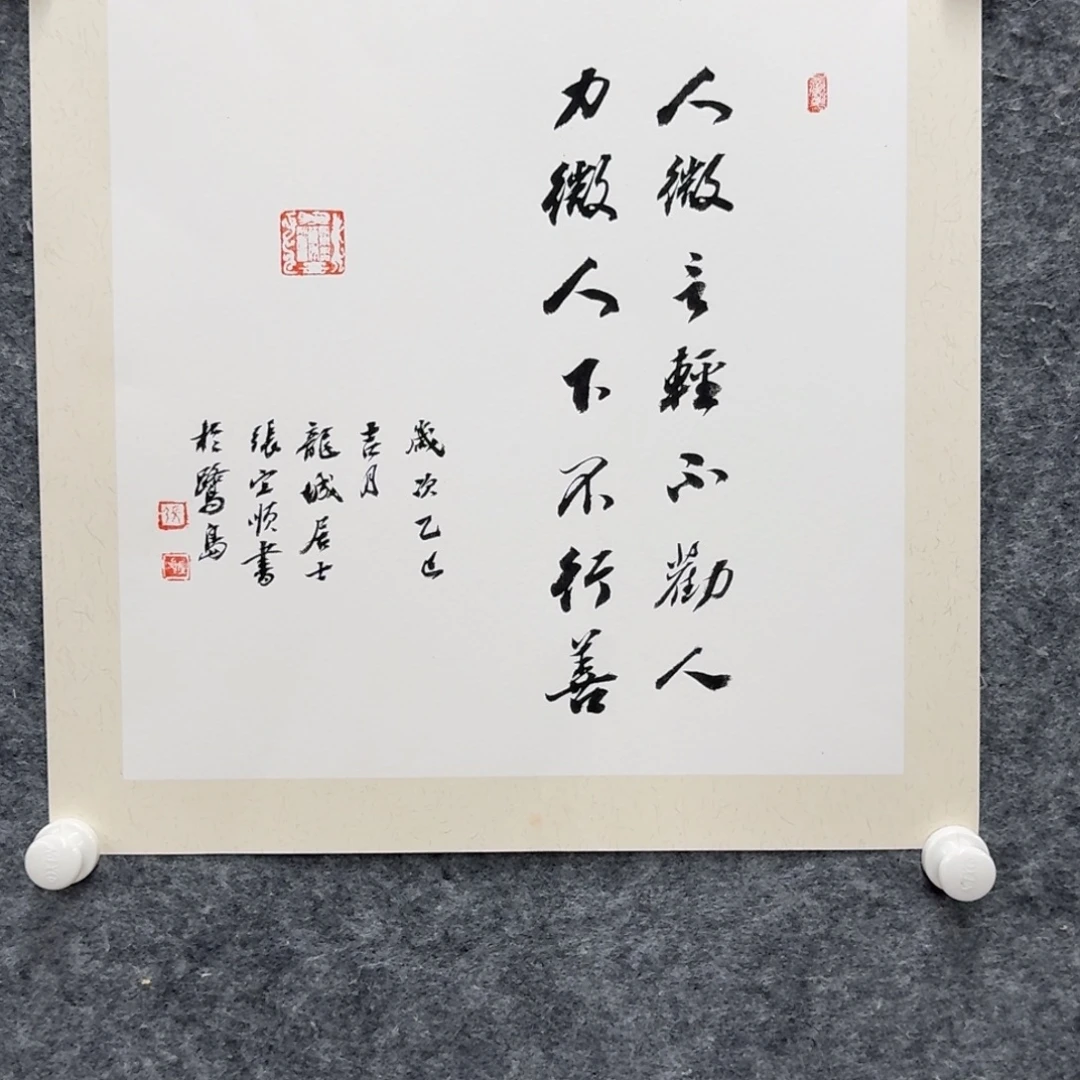 人微言輕不勸人
力微人下不行善
歲次乙巳
吉月
龍城居士
張宝順書
於鷺島